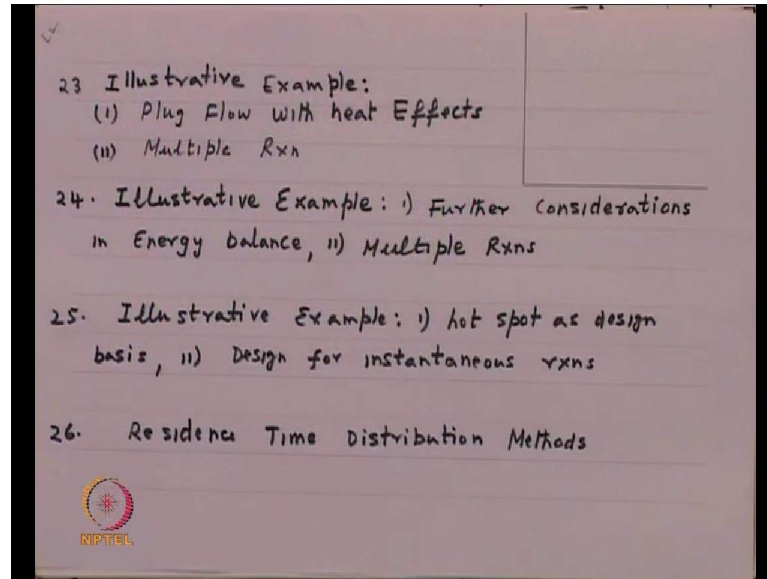 23 Illustrative Example:
(i) Plug Flow with heat Effects
(ii) Multiple Rxn
24. Illustrative Example: i) Further Considerations
in Energy balance, ii) Multiple Rxns
25. Illustrative Example: i) hot spot as design
basis, ii) Design for instantaneous rxns
26. Residence Time Distribution Methods
NPTEL